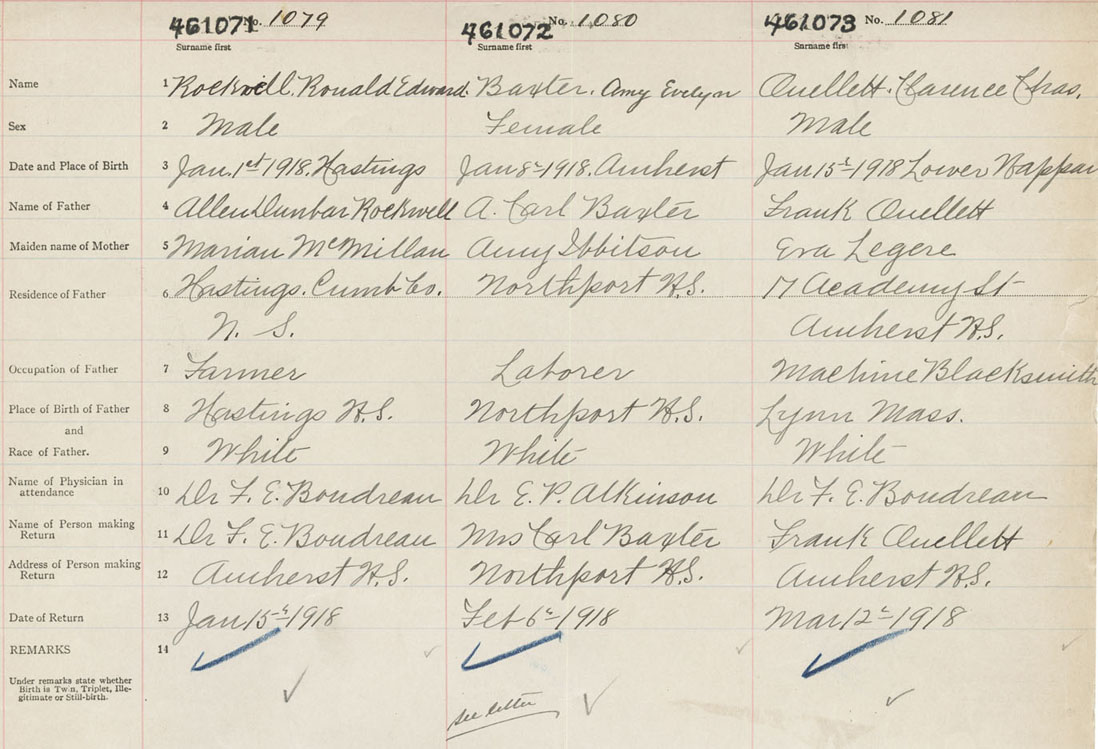 461071 No. 1079 461072 No. 1080 461073 No. 1081
Surname first Surname first Surname first
Name 1 Rockwell. Ronald Edward. Baxter. Amy Evelyn Ouellett. Clarence Chas.
Sex 2 Male Female Male
Date and Place of Birth 3 Jan. 1st 1918. Hastings Jan 8th 1918. Amherst Jan 15th 1918 Lower Nappan
Name of Father 4 Allen Dunbar Rockwell A. Carl Baxter Frank Ouellett
Maiden name of Mother 5 Marian McMillan Amy Ibbitson Eva Legere
Residence of Father 6 Hastings. Cumb Co. Northport N.S. 17 Academy St
N. S. Amherst N.S.
Occupation of Father 7 Farmer Laborer Machine Blacksmith
Place of Birth of Father 8 Hastings N.S. Northport N.S. Lynn Mass.
and
Race of Father. 9 White White White
Name of Physician in
attendance 10 Dr F. E. Boudreau Dr E. P. Atkinson Dr F. E. Boudreau
Name of Person making
Return 11 Dr F. E. Boudreau Mrs Carl Baxter Frank Ouellett
Address of Person making
Return 12 Amherst N.S. Northport N.S. Amherst N.S.
Date of Return 13 Jan 15th 1918 Feb 6th 1918 Mar 12th 1918
REMARKS 14
Under remarks state whether
Birth is Twin, Triplet, Ille-
gitimate or Still-birth.
See letter